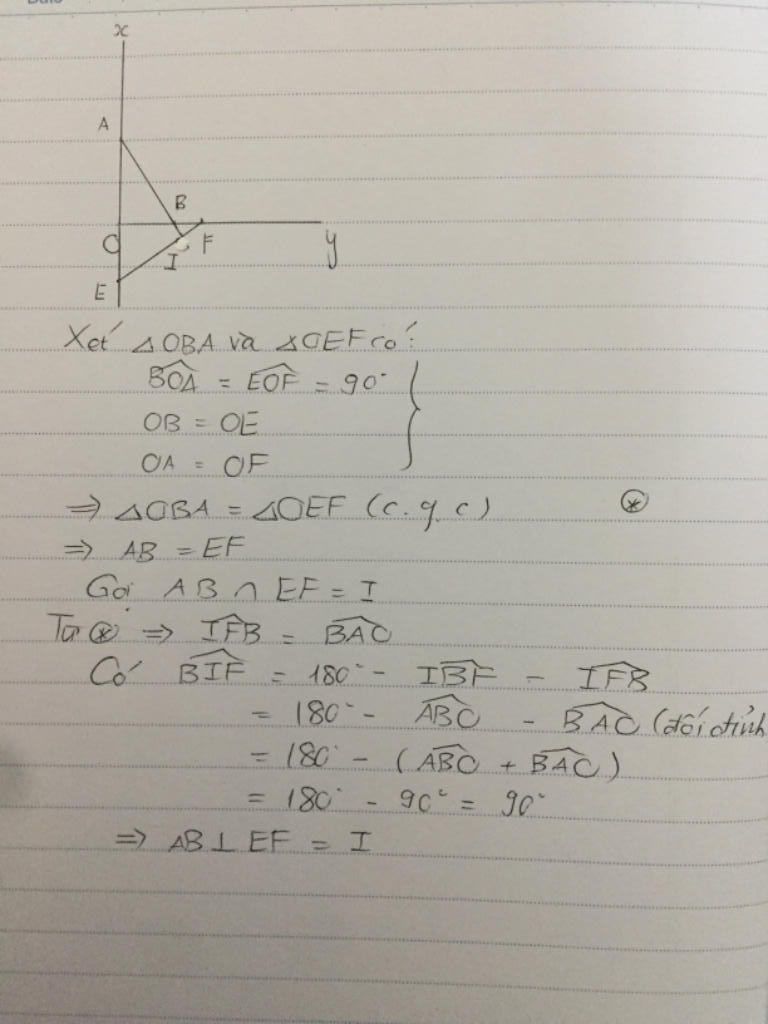 x
A
B
O
I
F
y
E
Xét △OBA và △OEF có:
$\widehat{BOA}$ = $\widehat{EOF}$ = 90°
OB = OE
OA = OF
⇒ △OBA = △OEF (c.g.c) ⊛
⇒ AB = EF
Gọi AB ∩ EF = I
Từ ⊛ ⇒ $\widehat{IFB}$ = $\widehat{BAO}$
Có $\widehat{BIF}$ = 180° - $\widehat{IBF}$ - $\widehat{IFB}$
= 180° - $\widehat{ABO}$ - $\widehat{BAO}$ (đối đỉnh
= 180° - ($\widehat{ABO}$ + $\widehat{BAO}$)
= 180° - 90° = 90°
⇒ AB ⊥ EF = I